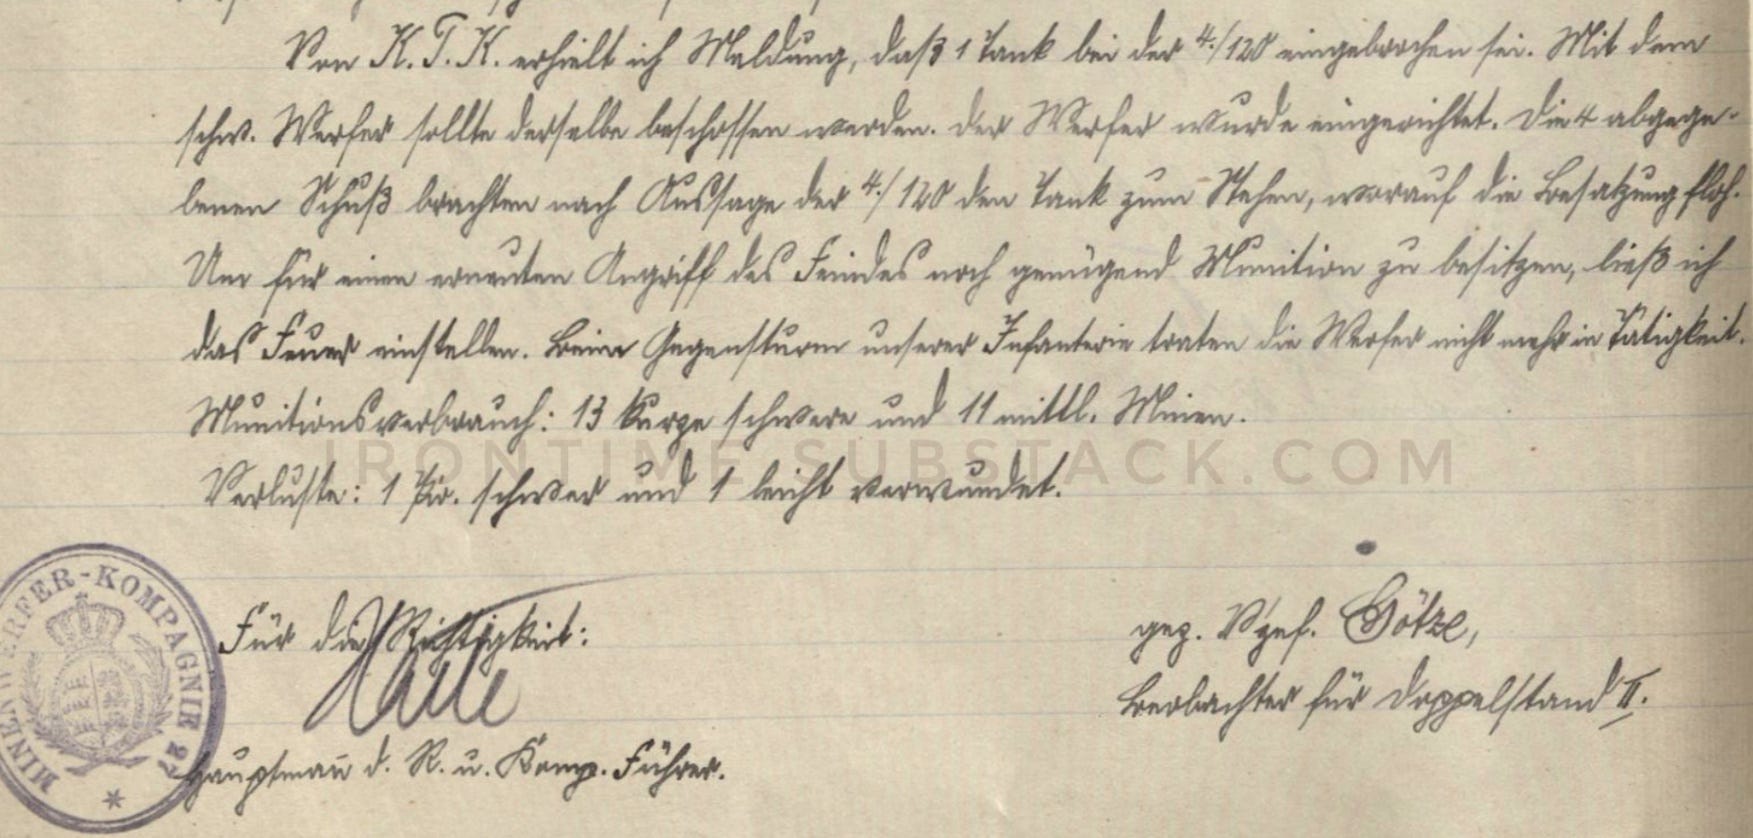 Von K. T. K. erhielt ich Meldung, daß 1 Tank bei der 4./120 eingebrochen sei. Mit dem
schw. Werfer sollte derselbe beschossen werden. Der Werfer wurde eingerichtet. Die 4 abgege-
benen Schuß brachten nach Aussage der 4./120 den Tank zum Stehen, worauf die Besatzung floh.
Um für einen erneuten Angriff des Feindes noch genügend Munition zu besitzen, ließ ich
das Feuer einstellen. Beim Gegensturm unserer Infanterie traten die Werfer nicht mehr in Tätigkeit.
Munitionsverbrauch: 13 kurze schwere und 11 mittl. Minen.
IRONTIME.SUBSTACK.COM
Verluste: 1 Pio. schwer und 1 leicht verwundet.
MINENWERFER-KOMPAGNIE 27
Für die Richtigkeit:
gez. Vzef. Götze,
Beobachter für Doppelstand II.
Hauptmann d. R. u. Komp. Führer.